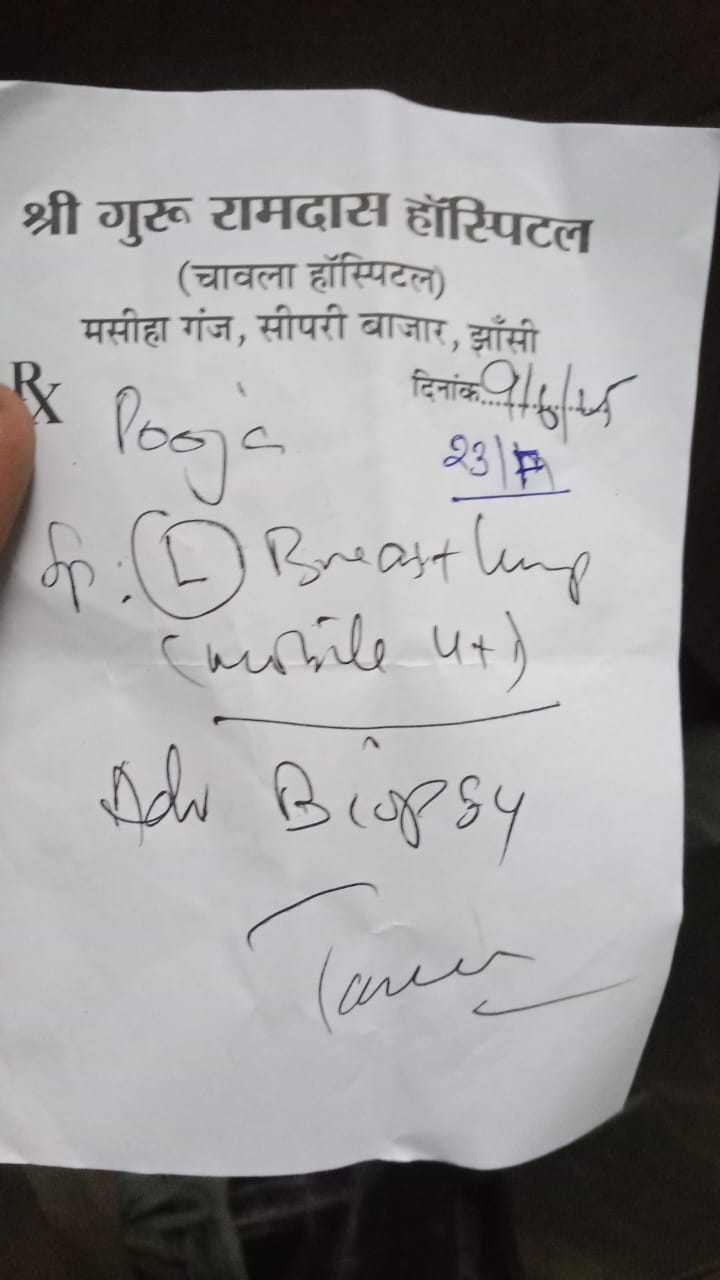 श्री गुरू रामदास हॉस्पिटल
(चावला हॉस्पिटल)
मसीहा गंज, सीपरी बाजार, झाँसी
Rx
दिनांक 9/6/25
Pooja
23/F
(L) Breast lump
(mobile
Adv Biopsy